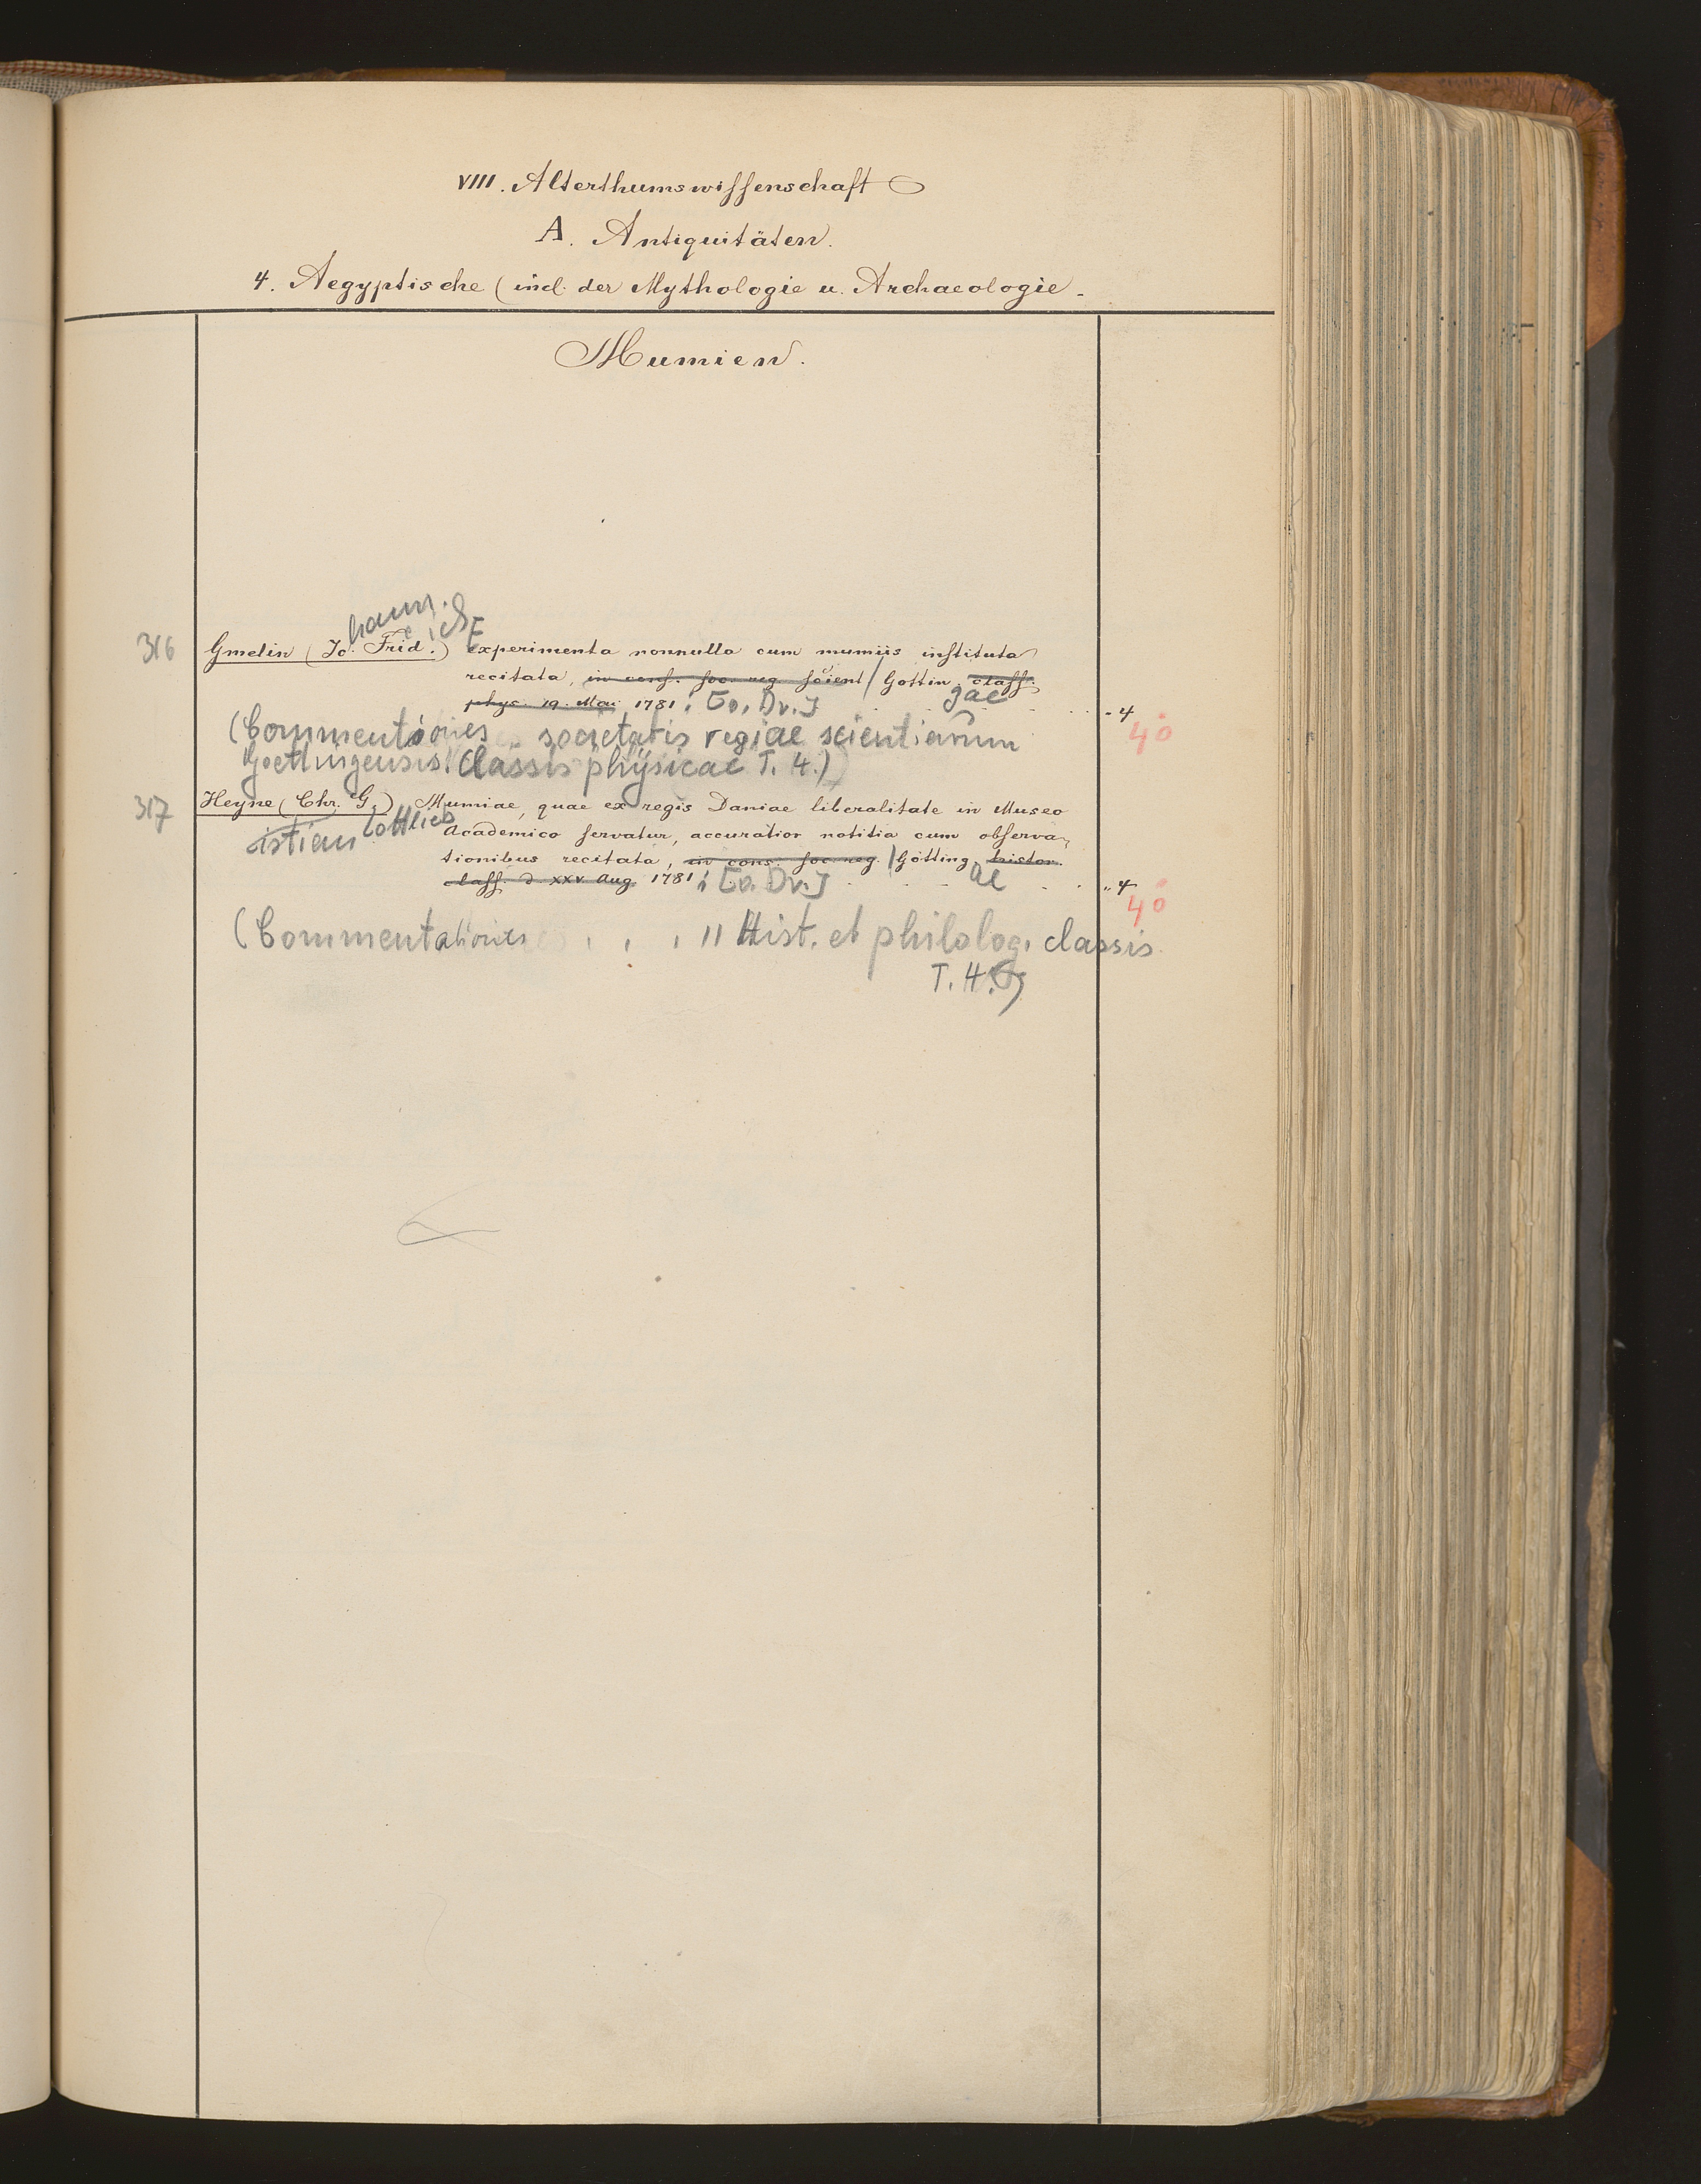 VIII. Alterthumswissenschaft
A. Antiquitäten.
4. Aegyptische (incl. der Mythologie u. Archaeologie.
Mumien.
hann. ich
316 Gmelin (Jo. Frid.) Experimenta nonnulla cum mumiis instituta
recitata, in cons. soc. reg. scient / Gottin. class.
phys. 19. Mai 1781; [o. Dr.] gae " 4
(Commentationes societatis regiae scientiarum 4°
Goettingensis. Classis physicae T. 4.)
317 Heyne (Chr. G.) Mumiae, quae ex regis Daniae liberalitate in Museo
istian ottlieb Academico servatur, accuratior notitia cum observa-
tionibus recitata, in cons. soc. reg. / Götting. histor.
class. d. XXV Aug. 1781; [o. Dr.] ae " 4
4°
(Commentationes . . . " Hist. et philolog. classis
T. 4.)